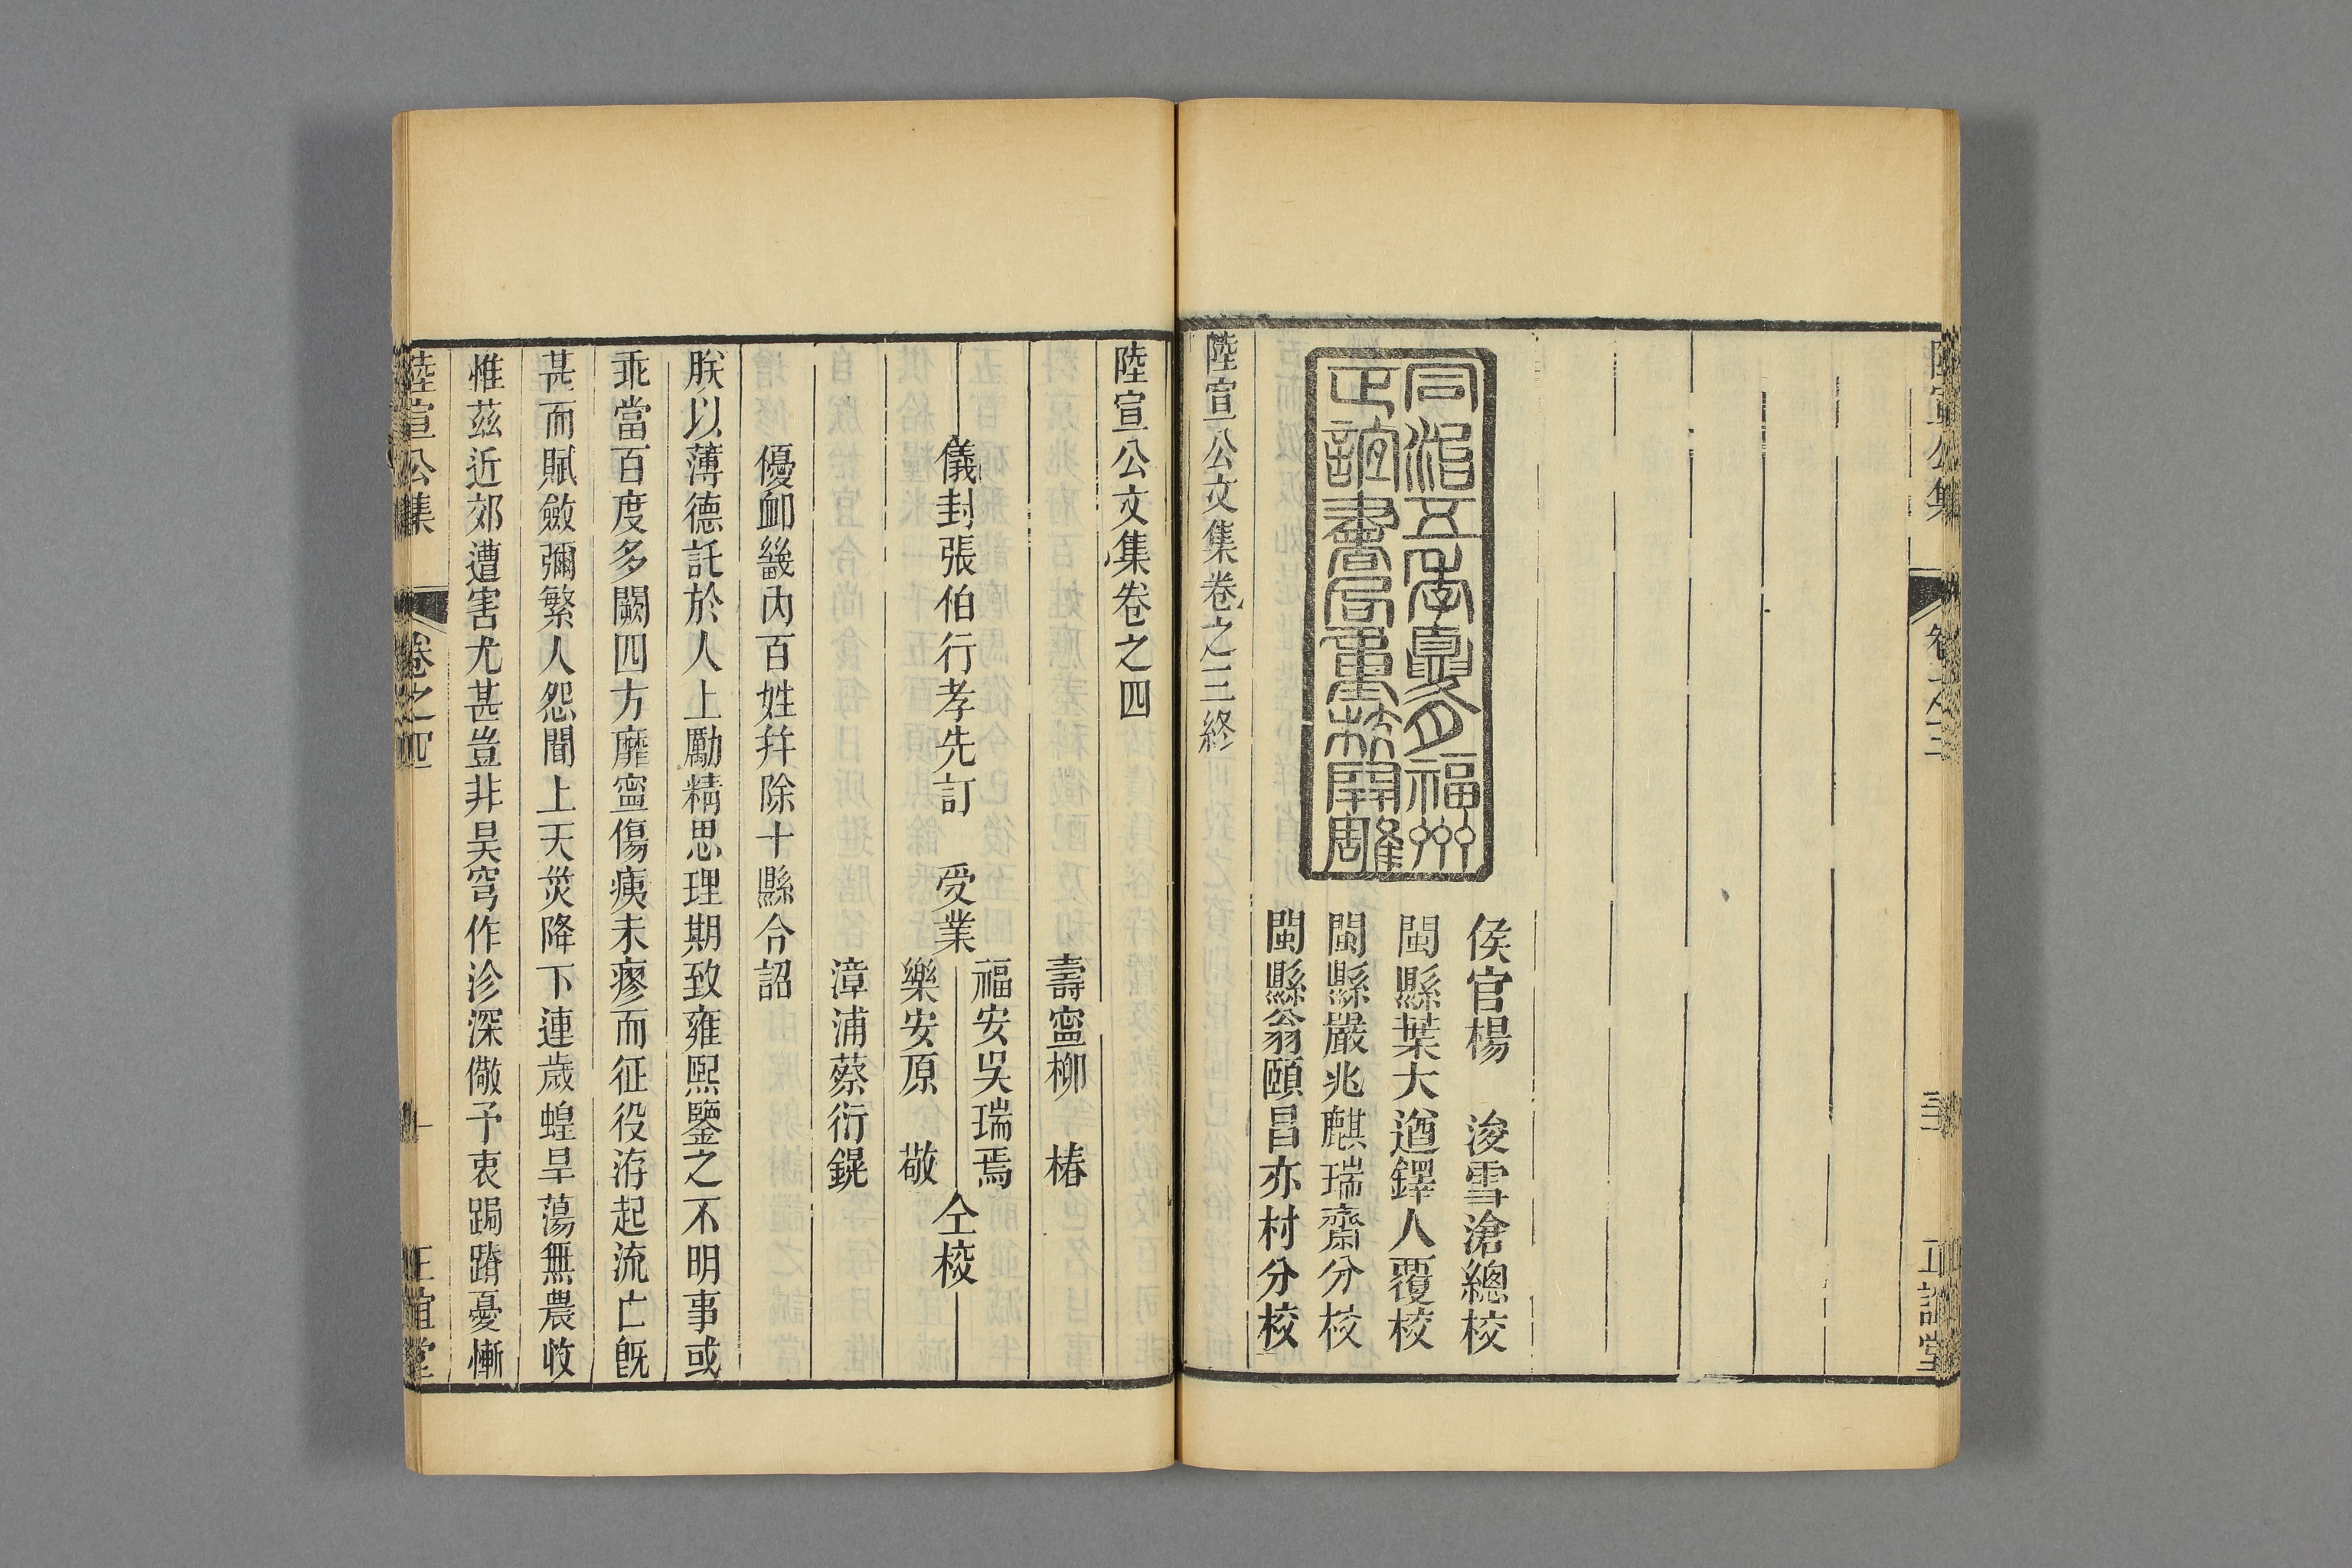 同治五年夏月福州
正誼書局重校開雕
侯官楊　浚雪滄總校
閩縣葉大遒鐸人覆校
閩縣嚴兆麒瑞齋分校
閩縣翁頤昌亦村分校
陸宣公文集卷之三終
陸宣公文集卷之四
壽寧柳　椿
儀封張伯行孝先訂　受業
福安吳瑞焉
樂安原　敬
仝校
漳浦蔡衍鎤
優卹畿內百姓幷除十縣令詔
朕以薄德託於人上勵精思理期致雍熙鑒之不明事或
乖當百度多闕四方靡寧傷痍未瘳而征役洊起流亡旣
甚而賦斂彌繁人怨聞上天災降下連歲蝗旱蕩無農收
惟茲近郊遭害尤甚豈非昊穹作沴深儆予衷跼蹐憂慚
陸宣公集
卷之四
一
正誼堂